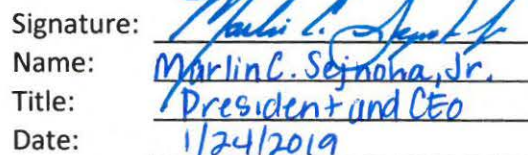 Signature: Marlin C. Sejnoha Jr.
Name: Marlin C. Sejnoha, Jr.
Title: President and CEO
Date: 1/24/2019